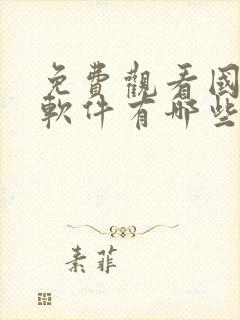 免費觀看國
軟件有哪些
素菲